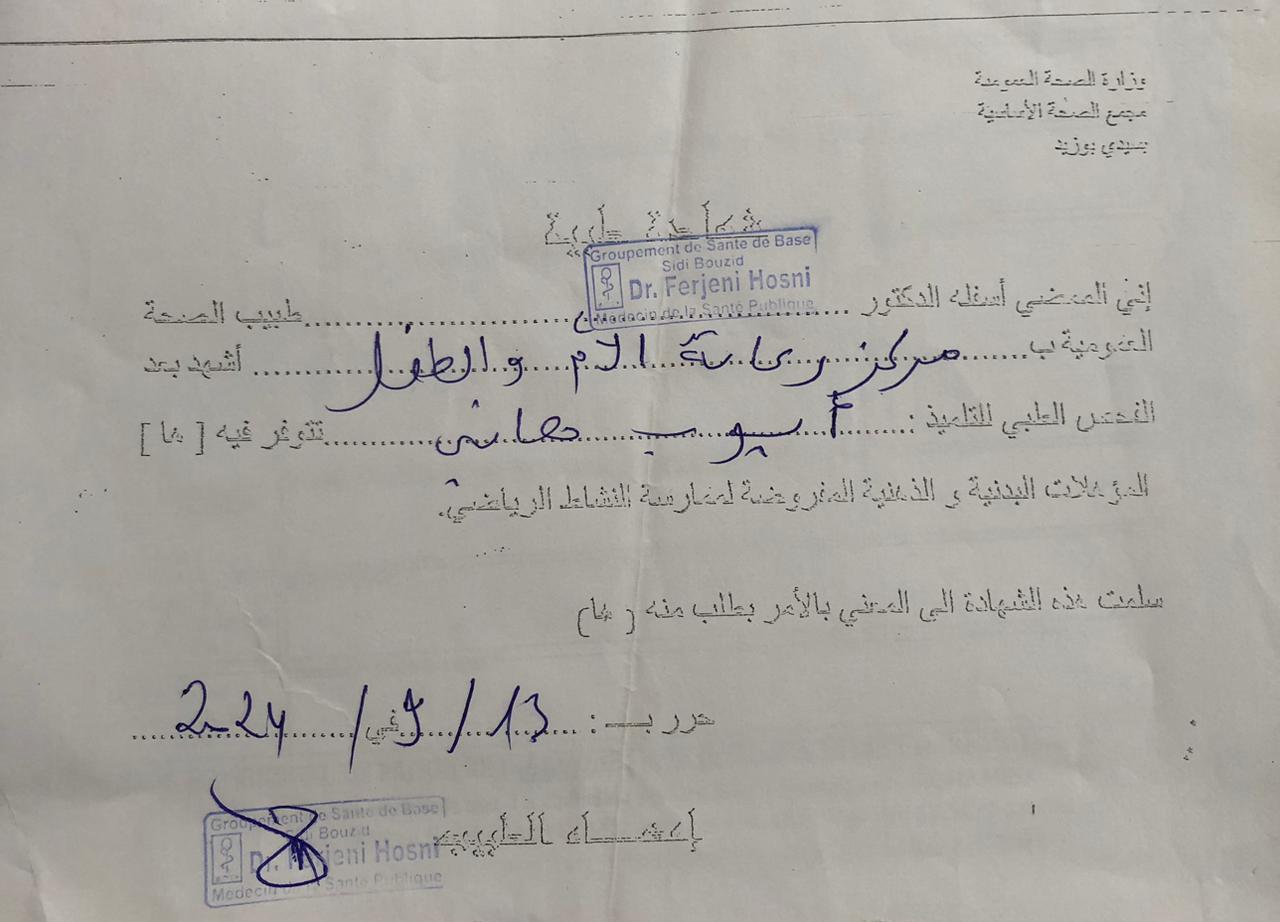 وزارة الصحة العمومية
مجمع الصحة الأساسية
بسيدي بوزيد
شهادة طبية
Groupement de Santé de Base
Sidi Bouzid
Dr. Ferjeni Hosni
Médecin de la Santé Publique
إني الممضي أسفله الدكتور ........ طبيب الصحة
العمومية ب ........ مركز رعاية الام والطفل ........ أشهد بعد
الفحص الطبي للتلميذ : ........ أيوب ........ تتوفر فيه [ ها ]
المؤهلات البدنية و الذهنية المفروضة لممارسة النشاط الرياضي.
سلمت هذه الشهادة الى المعني بالأمر بطلب منه ( ها )
حرر بـــ : 13 / 9 في / 2024
إمضـــاء الطبيب
Groupement de Santé de Base
Sidi Bouzid
Dr. Ferjeni Hosni
Médecin de la Santé Publique